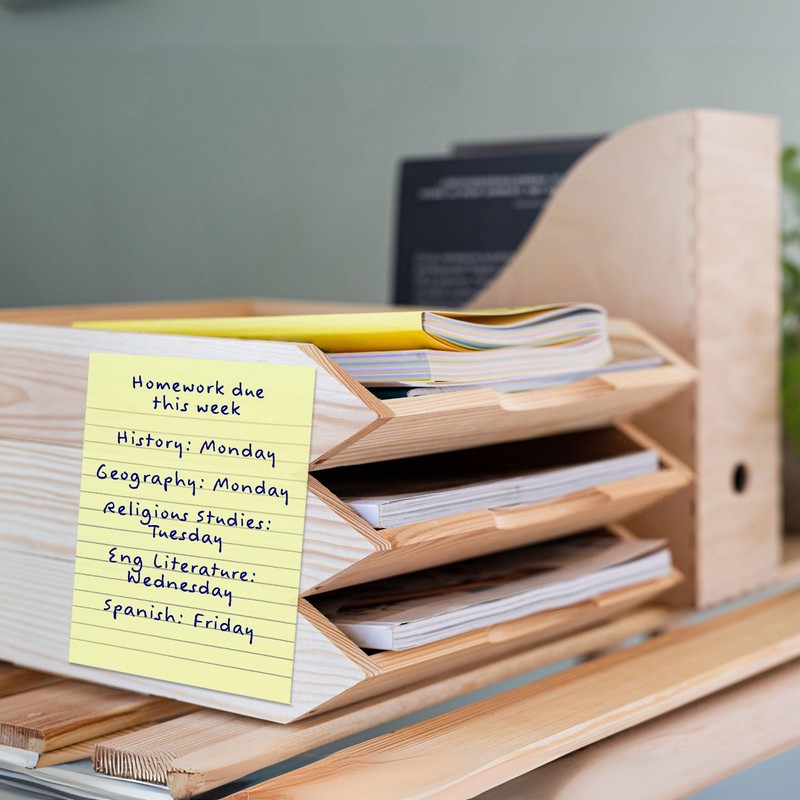 Homework due
this week
History: Monday
Geography: Monday
Religious Studies:
Tuesday
Eng Literature:
Wednesday
Spanish: Friday